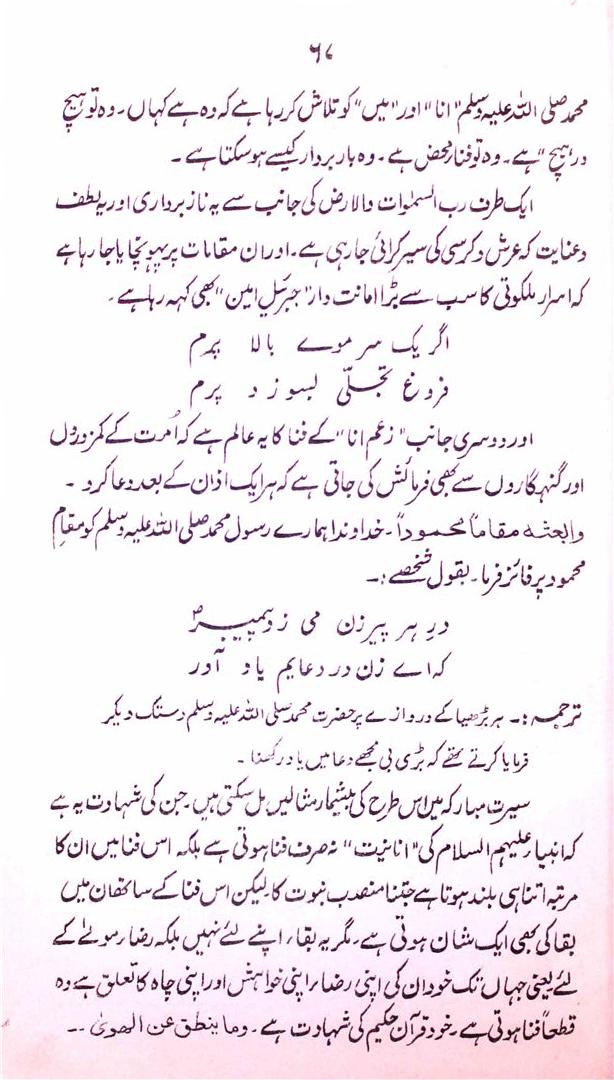 ۶۷
محمد صلی اللہ علیہ وسلم "انا" اور "میں" کو تلاش کر رہا ہے کہ وہ ہے کہاں۔ وہ تو "ہیچ
در ہیچ" ہے۔ وہ تو فنار محض ہے۔ وہ بار بردار کیسے ہو سکتا ہے۔
ایک طرف رب السمٰوات والارض کی جانب سے یہ ناز برداری اور یہ لطف
وعنایت کہ عرش وکرسی کی سیر کرائی جا رہی ہے۔ اور ان مقامات پر پہونچایا جا رہا ہے
کہ اسرار ملکوتی کا سب سے بڑا امانت دار "جبرئیل امین" بھی کہہ رہا ہے۔
اگر یک سر موے بالا پرم
فروغ تجلّی بسوزد پرم
اور دوسری جانب "زعم انا" کے فنا کا یہ عالم ہے کہ اُمت کے کمزوروں
اور گنہگاروں سے بھی فرمائش کی جاتی ہے کہ ہر ایک اذان کے بعد دعا کرو۔
وابعثہ مقاماً محموداً۔ خداوندا ہمارے رسول محمد صلی اللہ علیہ وسلم کو مقامِ
محمود پر فائز فرما۔ بقول شخصے :۔
درِ ہر پیرزن می زد پیمبرؐ
کہ اے زن در دعایم یاد آور
ترجمہ :۔ ہر بڑھیا کے دروازے پر حضرت محمد صلی اللہ علیہ وسلم دستک دیکر
فرمایا کرتے تھے کہ بڑی بی مجھے دعا میں یاد رکھنا۔
سیرت مبارکہ میں اس طرح کی بیشمار مثالیں مل سکتی ہیں۔ جن کی شہادت یہ ہے
کہ انبیار علیہم السلام کی "انانیت" نہ صرف فنا ہوتی ہے بلکہ اس فنا میں ان کا
مرتبہ اتنا ہی بلند ہوتا ہے جتنا منصب نبوت کا۔ لیکن اس فنا کے ساتھ ان میں
بقا کی بھی ایک شان ہوتی ہے۔ مگر یہ بقا، اپنے لئے نہیں بلکہ رضار مولےٰ کے
لئے یعنی جہاں تک خود ان کی اپنی رضا، اپنی خواہش اور اپنی چاہ کا تعلق ہے وہ
قطعاً فنا ہوتی ہے۔ خود قرآن حکیم کی شہادت ہے۔ وما ینطق عن الھویٰ۔۔